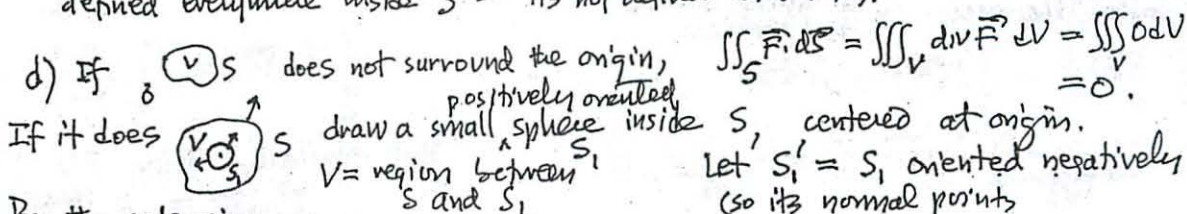 defined everywhere inside S
d) If 0 V S does not surround the origin, ∬_S F⃗·dS⃗ = ∭_V div F⃗ dV = ∭_V 0 dV
= 0.
If it does V S₁ S draw a small positively oriented sphere S₁ inside S, centered at origin.
V = region between S and S₁
Let S₁' = S₁ oriented negatively
(so its normal points